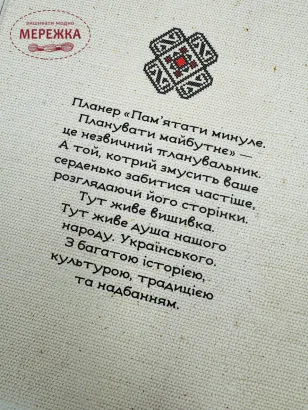 вишивати модно
МЕРЕЖКА
Планер «Пам'ятати минуле.
Планувати майбутнє» —
це незвичний планувальник.
А той, котрий змусить ваше
серденько забитися частіше,
розглядаючи його сторінки.
Тут живе вишивка.
Тут живе душа нашого
народу. Українського.
З багатою історією,
культурою, традицією
та надбанням.